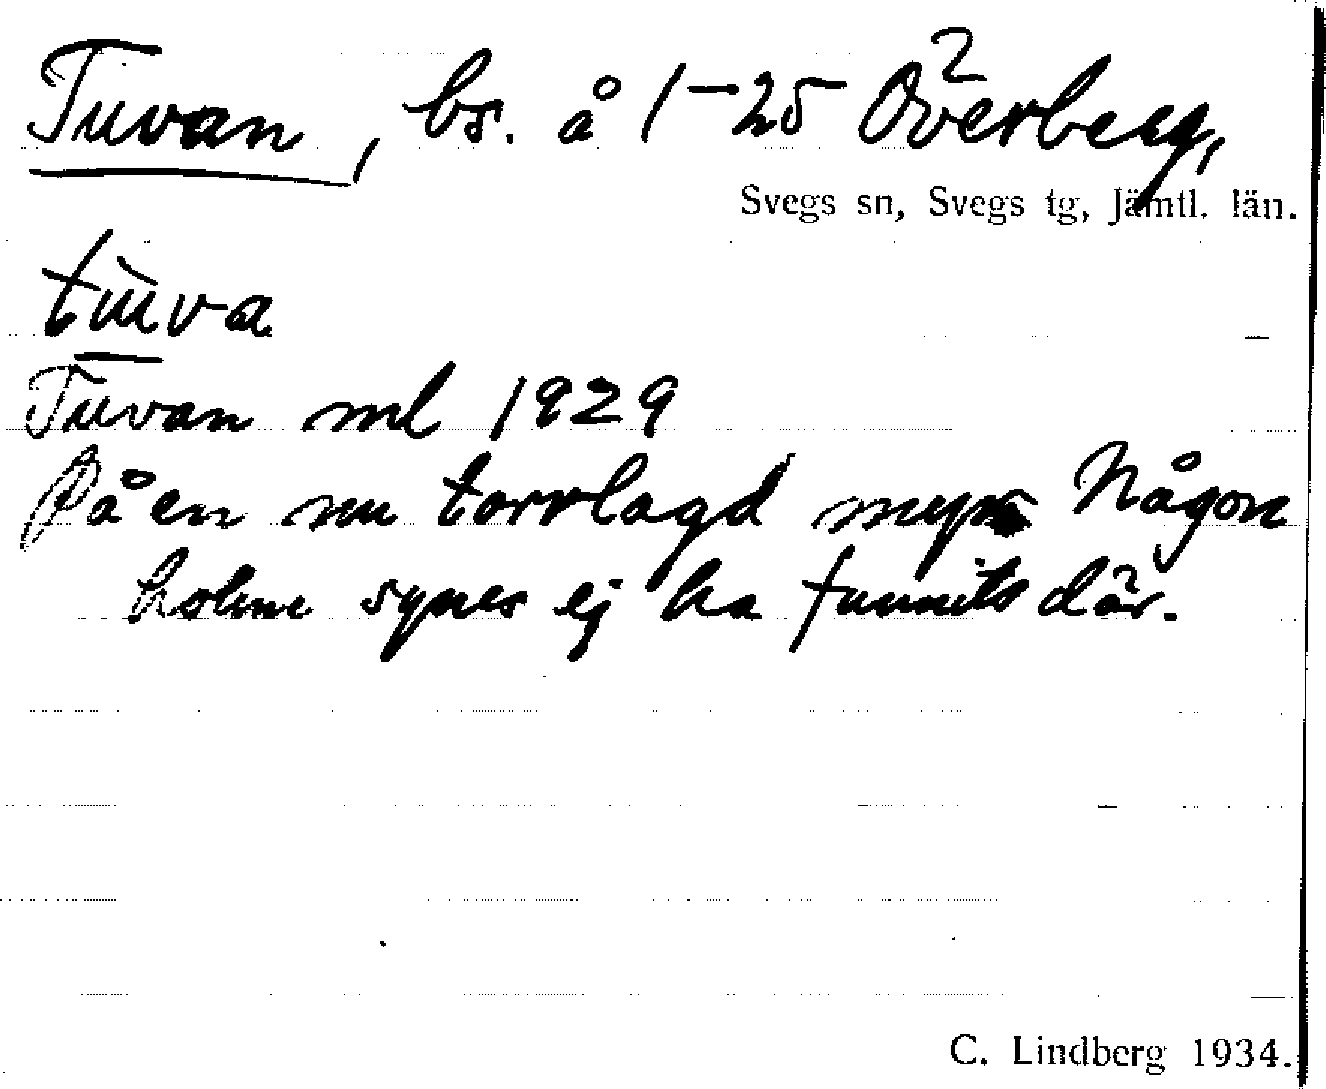 Tuvan, bs. å 1-25 Överberg,
Svegs sn, Svegs tg, Jämtl. län.
tùva
Tuvan ml 1929
På en nu torrlagd myr. Någon
holme synes ej ha funnits där.
C. Lindberg 1934.